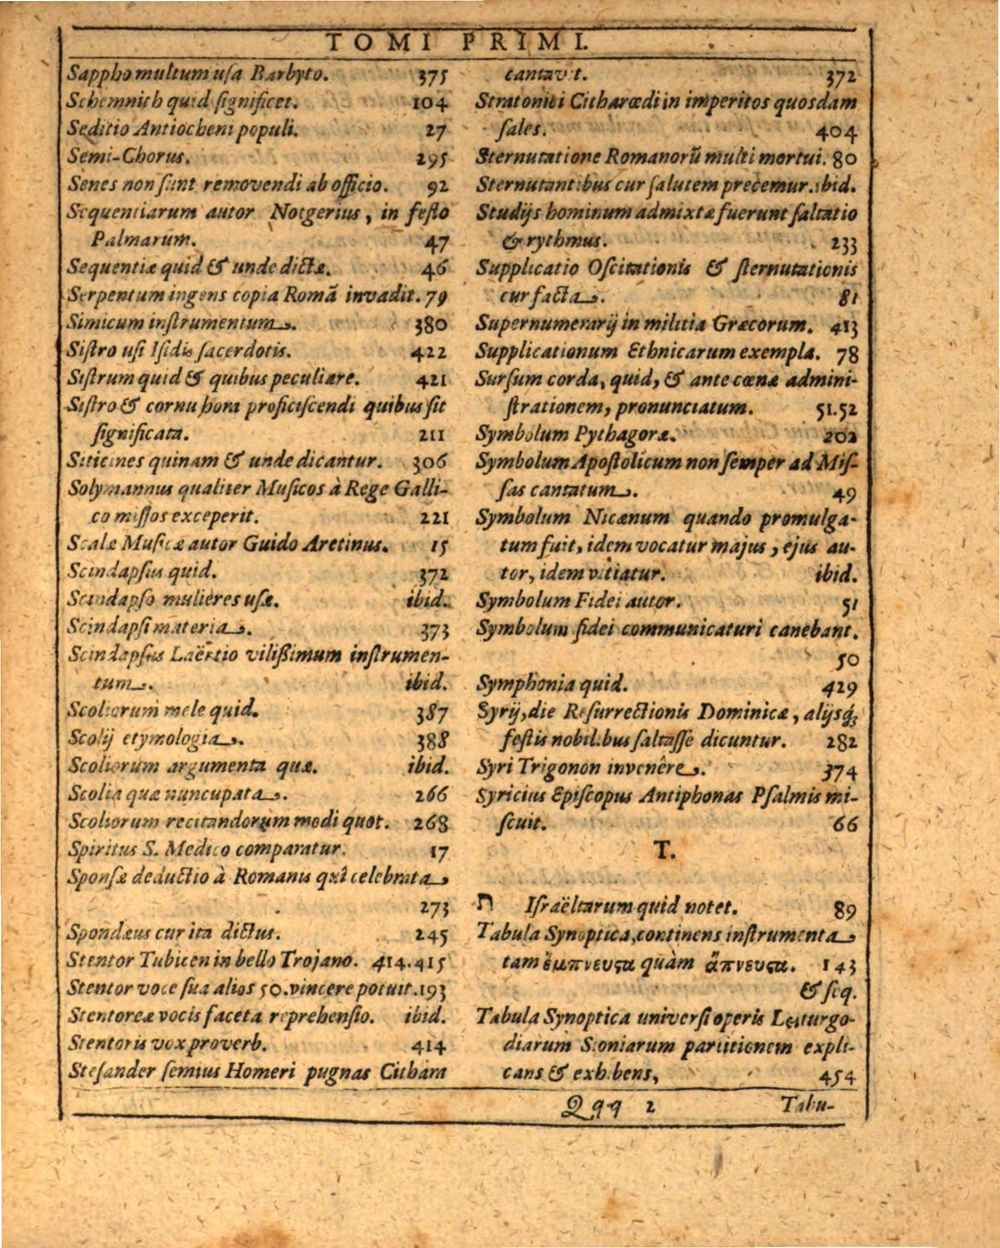 TOMI PRIMI.
Sappho multum usa Barbyto. 375
Schemnith quid significet. 104
Seditio Antiocheni populi. 27
Semi-Chorus. 295
Senes non sunt removendi ab officio. 92
Sequentiarum autor Notgerius, in festo
Palmarum. 47
Sequentiæ quid & unde dictæ. 46
Serpentum ingens copia Romã invadit. 79
Simicum instrumentum. 380
Sistro usi Isidis sacerdotis. 422
Sistrum quid & quibus peculiare. 421
Sistro & cornu homi proficiscendi quibus sit
significata. 211
Siticines quinam & unde dicantur. 306
Solymannus qualiter Musicos à Rege Galli-
co missos exceperit. 221
Scalæ Musicæ autor Guido Aretinus. 15
Scindapsus quid. 372
Scindapso mulieres usæ. ibid.
Scindapsi materia. 373
Scindapsus Laërtio vilissimum instrumen-
tum. ibid.
Scoliorum mele quid. 387
Scolij etymologia. 388
Scoliorum argumenta quæ. ibid.
Scolia quæ nuncupata. 266
Scoliorum recitandorum modi quot. 268
Spiritus S. Medico comparatur. 17
Sponsæ deductio à Romanis quî celebrata
273
Spondæus cur ita dictus. 245
Stentor Tubicen in bello Trojano. 414.415
Stentor voce sua alios 50. vincere potuit. 193
Stentoreæ vocis faceta reprehensio. ibid.
Stentoris vox proverb. 414
Stesander semius Homeri pugnas Cithara
cantavit. 372
Stratonici Citharœdi in imperitos quosdam
sales. 404
Sternutatione Romanorũ multi mortui. 80
Sternutantibus cur salutem precemur. ibid.
Studijs hominum admixtæ fuerunt saltatio
& rythmus. 233
Supplicatio Oscitationis & sternutationis
cur facta. 81
Supernumerarij in militia Græcorum. 413
Supplicationum Ethnicarum exempla. 78
Sursum corda, quid, & ante cœnæ admini-
strationem, pronunciatum. 51.52
Symbolum Pythagoræ. 202
Symbolum Apostolicum non semper ad Mis-
sas cantatum. 49
Symbolum Nicænum quando promulga-
tum fuit, idem vocatur majus, ejus au-
tor, idem vitiatur. ibid.
Symbolum Fidei autor. 51
Symbolum fidei communicaturi canebant.
50
Symphonia quid. 429
Syrij, die Resurrectionis Dominicæ, alijsq́;
festis nobilibus saltasse dicuntur. 282
Syri Trigonon invenêre. 374
Syricius Episcopus Antiphonas Psalmis mi-
scuit. 66
T.
ת Israëltarum quid notet. 89
Tabula Synoptica, continens instrumenta
tam ἔμπνευστα quàm ἄπνευστα. 143
& seq.
Tabula Synoptica universi operis Leiturgo-
diarum Sioniarum partitionem expli-
cans & exhibens, 454
Qqq 2 Tabu-